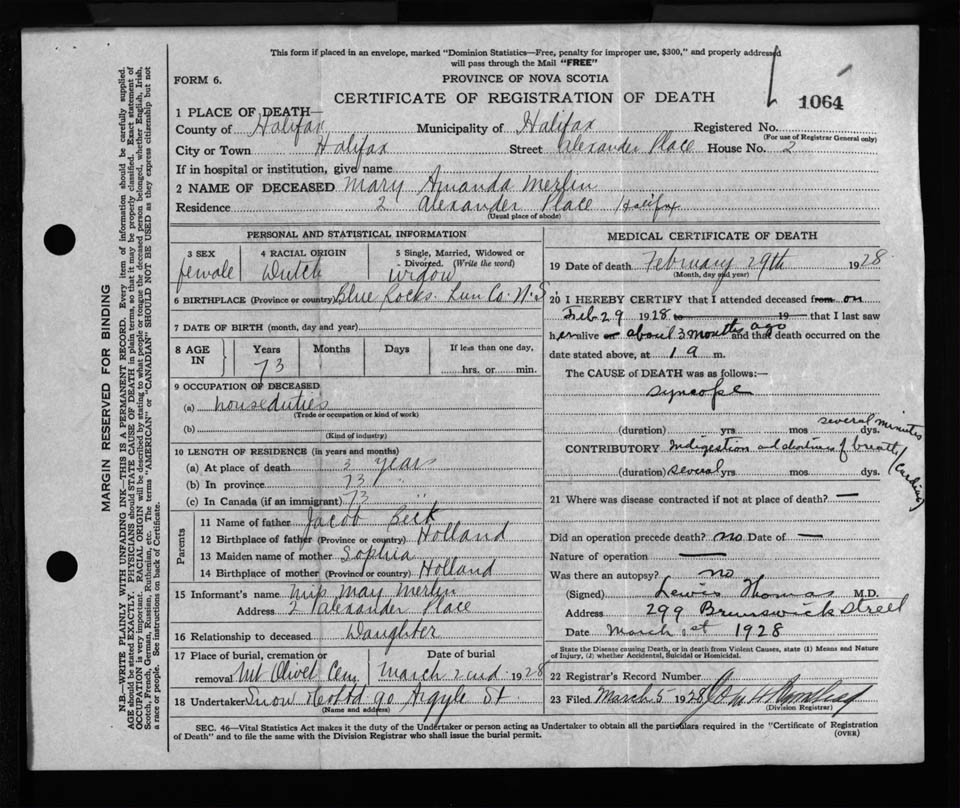 This form if placed in an envelope, marked "Dominion Statistics—Free, penalty for improper use, $300," and properly addressed
will pass through the Mail "FREE"
FORM 6.
PROVINCE OF NOVA SCOTIA
CERTIFICATE OF REGISTRATION OF DEATH
1064
1 PLACE OF DEATH—
County of Halifax Municipality of Halifax Registered No.
(For use of Registrar General only)
City or Town Halifax Street Alexander Place House No. 2
If in hospital or institution, give name
2 NAME OF DECEASED Mary Amanda Merlin
Residence 2 Alexander Place Halifax
(Usual place of abode)
PERSONAL AND STATISTICAL INFORMATION
3 SEX
female
4 RACIAL ORIGIN
Dutch
5 Single, Married, Widowed or
Divorced. (Write the word)
widow
6 BIRTHPLACE (Province or country) Blue Rocks. Lun Co. N.S.
7 DATE OF BIRTH (month, day and year)
8 AGE IN
Years
73
Months
Days
If less than one day,
hrs. or min.
9 OCCUPATION OF DECEASED
(a) houseduties
(Trade or occupation or kind of work)
(b)
(Kind of industry)
10 LENGTH OF RESIDENCE (in years and months)
(a) At place of death 3 years
(b) In province 73 "
(c) In Canada (if an immigrant) 73 "
Parents
11 Name of father Jacob Beck
12 Birthplace of father (Province or country) Holland
13 Maiden name of mother Sophia
14 Birthplace of mother (Province or country) Holland
15 Informant's name Miss May Merlin
Address 2 Alexander Place
16 Relationship to deceased Daughter
17 Place of burial, cremation or
removal Mt Olivet Cem
Date of burial
March 2nd 1928
18 Undertaker Snow & Co Ltd 90 Argyle St.
(Name and address)
MEDICAL CERTIFICATE OF DEATH
19 Date of death February 29th 1928
(Month, day and year)
20 I HEREBY CERTIFY that I attended deceased from on
Feb 29 1928 to 19 that I last saw
her alive on about 3 months ago and that death occurred on the
date stated above, at 1 a m.
The CAUSE of DEATH was as follows:—
syncope
several minutes
(duration) yrs. mos. dys.
CONTRIBUTORY Indigestion and shortness of breath
(Cardiac)
(duration) several yrs. mos. dys.
21 Where was disease contracted if not at place of death? —
Did an operation precede death? no Date of —
Nature of operation —
Was there an autopsy? no
(Signed) Lewis Thomas M.D.
Address 299 Brunswick Street
Date March 1st 1928
State the Disease causing Death, or in death from Violent Causes, state (1) Means and Nature
of Injury, (2) whether Accidental, Suicidal or Homicidal.
22 Registrar's Record Number
23 Filed March 5 1928
(Division Registrar)
SEC. 46—Vital Statistics Act makes it the duty of the Undertaker or person acting as Undertaker to obtain all the particulars required in the "Certificate of Registration
of Death" and to file the same with the Division Registrar who shall issue the burial permit.
(OVER)
MARGIN RESERVED FOR BINDING
N.B.—WRITE PLAINLY WITH UNFADING INK—THIS IS A PERMANENT RECORD. Every item of information should be carefully supplied.
AGE should be stated EXACTLY. PHYSICIANS should STATE CAUSE OF DEATH in plain terms, so that it may be properly classified. Exact statement of
OCCUPATION is very important. RACIAL ORIGIN will be described by stating to what people or tongue the deceased person belonged, whether English, Irish,
Scotch, French, German, Russian, Ruthenian, etc. The terms "AMERICAN" or "CANADIAN" SHOULD NOT BE USED as they express citizenship but not
a race or people. See instructions on back of Certificate.